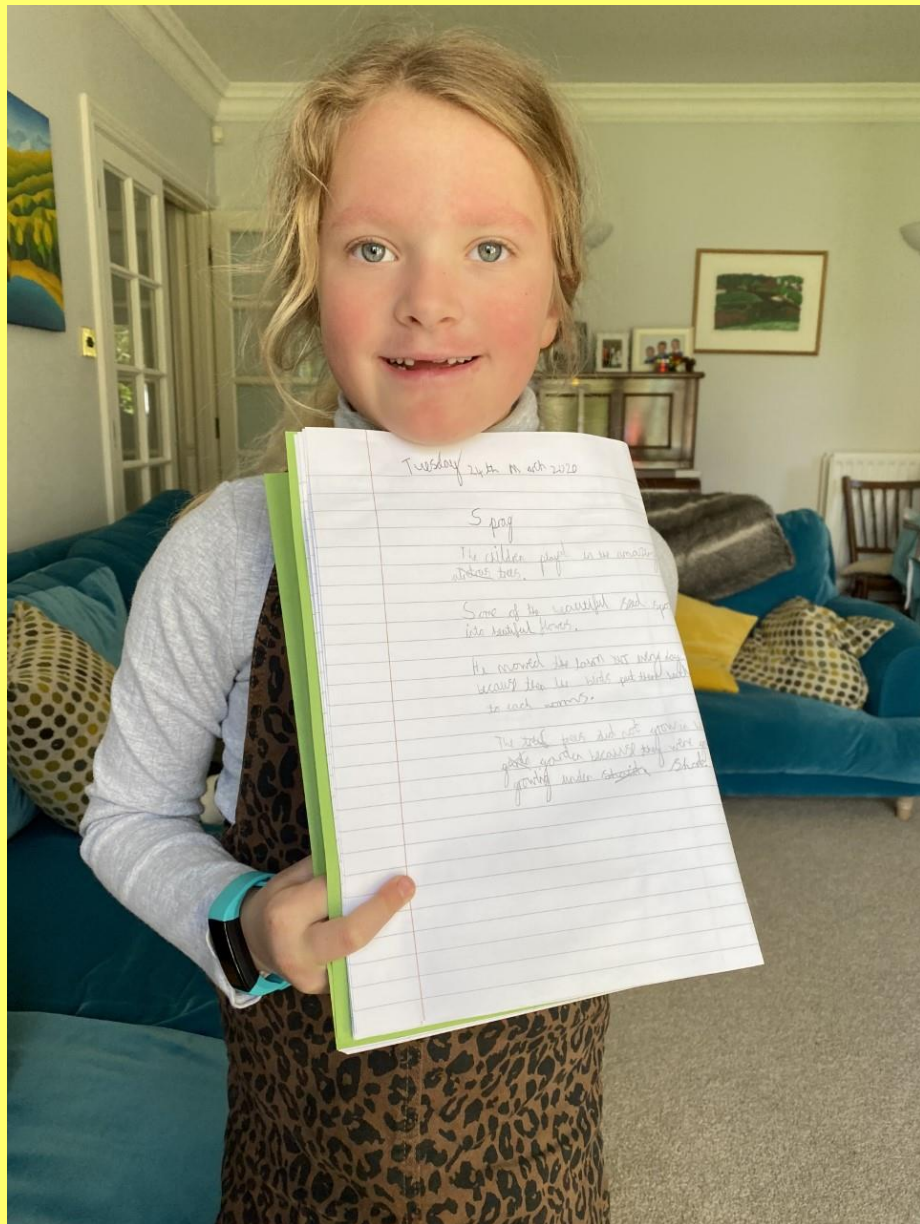 Tuesday 24th March 2020
Sprng
The children playd in the amazing
trees.
Some of the beautiful seed
into beautiful flowers.
He mowed the lawn not every day
because then the birds put their
to each worms.
The trees did not grow in
garden because they were
growing under